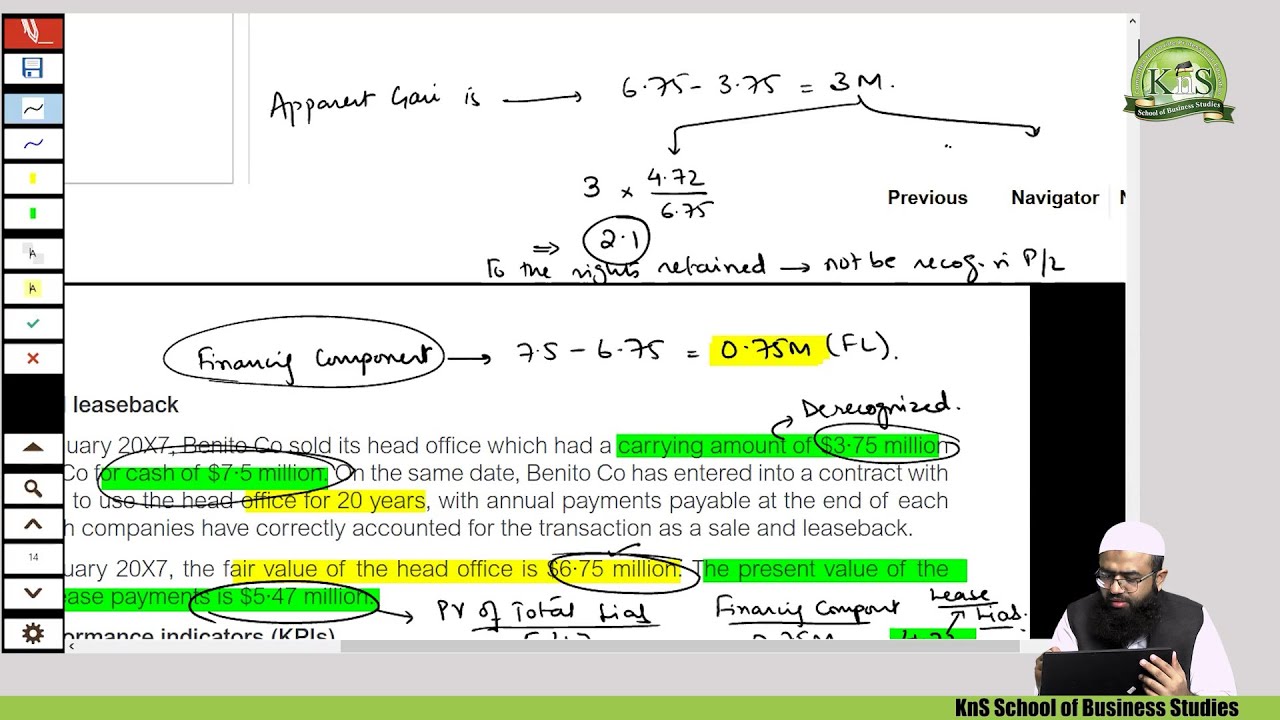 Apparent Gain is → 6.75 - 3.75 = 3M.
3 × 4.72 / 6.75
⇒ 2.1
To the rights retained → not be recog. in P/L
Previous Navigator
KnS
School of Business Studies
Financing Component → 7.5 - 6.75 = 0.75M (FL).
leaseback
Derecognized.
uary 20X7, Benito Co sold its head office which had a carrying amount of $3·75 million
Co for cash of $7·5 million. On the same date, Benito Co has entered into a contract with
to use the head office for 20 years, with annual payments payable at the end of each
h companies have correctly accounted for the transaction as a sale and leaseback.
uary 20X7, the fair value of the head office is $6·75 million. The present value of the
ease payments is $5·47 million.
PV of Total Liab Financing Component Lease Liab.
0.75M
formance indicators (KPIs)
14
KnS School of Business Studies